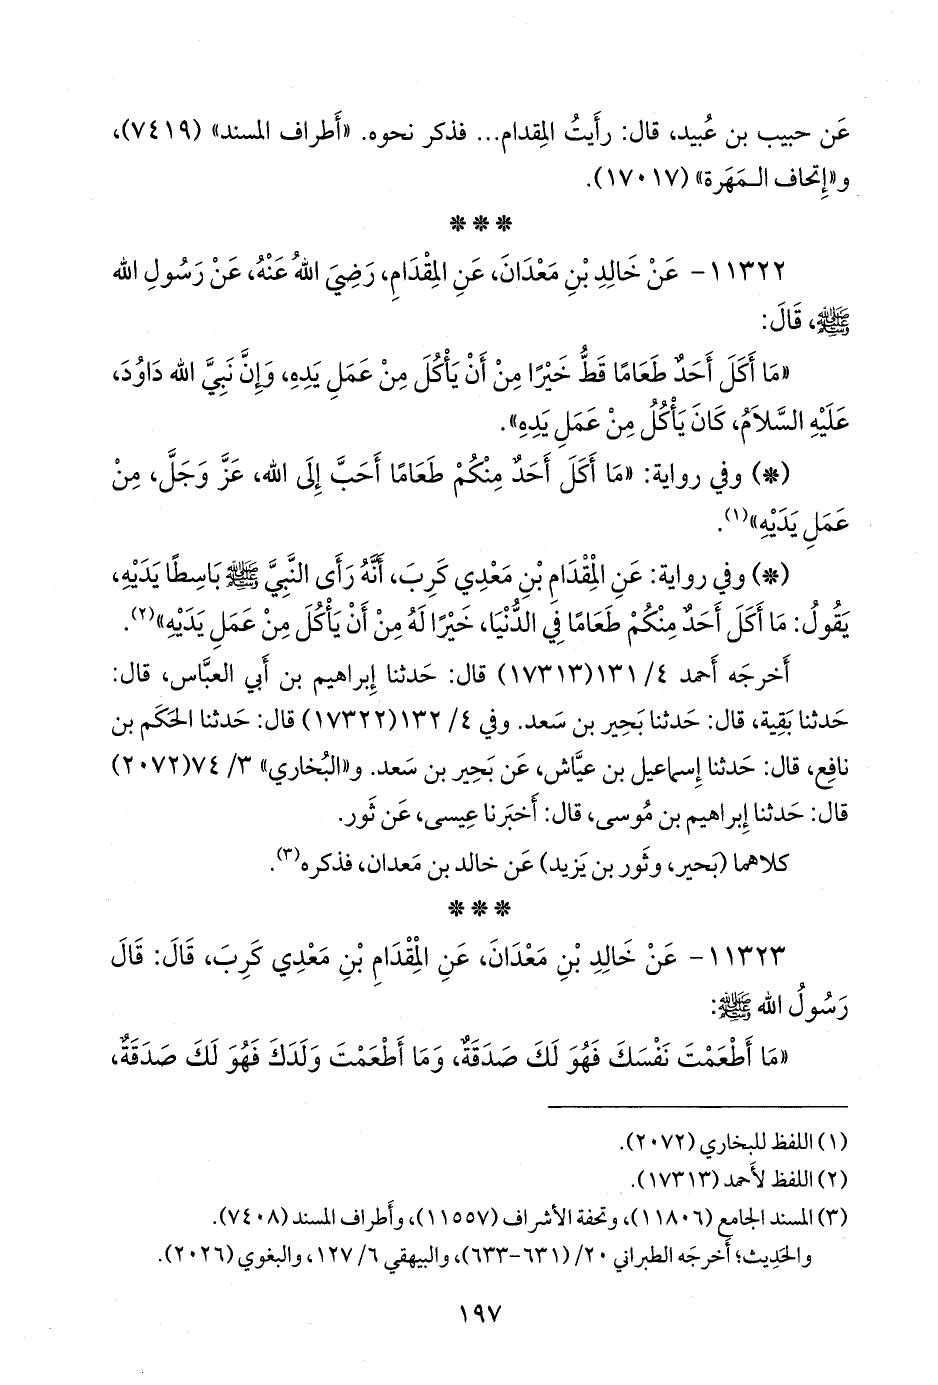 عَن حبيب بن عُبيد، قال: رأَيتُ المِقدام... فذكر نحوه. «أَطراف المسند» (٧٤١٩)،
و«إِتحاف الـمَهَرة» (١٧٠١٧).
***
١١٣٢٢- عَنْ خَالِدِ بْنِ مَعْدَانَ، عَنِ المِقْدَامِ، رَضِيَ اللهُ عَنْهُ، عَنْ رَسُولِ الله
ﷺ، قَالَ:
«مَا أَكَلَ أَحَدٌ طَعَامًا قَطُّ خَيْرًا مِنْ أَنْ يَأْكُلَ مِنْ عَمَلِ يَدِهِ، وَإِنَّ نَبِيَّ الله دَاوُدَ،
عَلَيْهِ السَّلاَمُ، كَانَ يَأْكُلُ مِنْ عَمَلِ يَدِهِ».
(*) وفي رواية: «مَا أَكَلَ أَحَدٌ مِنْكُمْ طَعَامًا أَحَبَّ إِلَى الله، عَزَّ وَجَلَّ، مِنْ
عَمَلِ يَدَيْهِ»(١).
(*) وفي رواية: عَنِ الْمِقْدَامِ بْنِ مَعْدِي كَرِبَ، أَنَّهُ رَأَى النَّبِيَّ ﷺ بَاسِطًا يَدَيْهِ،
يَقُولُ: مَا أَكَلَ أَحَدٌ مِنْكُمْ طَعَامًا فِي الدُّنْيَا، خَيْرًا لَهُ مِنْ أَنْ يَأْكُلَ مِنْ عَمَلِ يَدَيْهِ»(٢).
أَخرجَه أَحمد ٤/ ١٣١(١٧٣١٣) قال: حَدثنا إِبراهيم بن أَبي العبَّاس، قال:
حَدثنا بَقِية، قال: حَدثنا بَحِير بن سَعد. وفي ٤/ ١٣٢(١٧٣٢٢) قال: حَدثنا الحَكَم بن
نافِع، قال: حَدثنا إِسماعيل بن عيَّاش، عَن بَحِير بن سَعد. و«البُخاري» ٣/ ٧٤(٢٠٧٢)
قال: حَدثنا إِبراهيم بن مُوسى، قال: أَخبَرنا عِيسى، عَن ثَور.
كلاهما (بَحير، وثَور بن يَزيد) عَن خالد بن مَعدان، فذكره(٣).
***
١١٣٢٣- عَنْ خَالِدِ بْنِ مَعْدَانَ، عَنِ الْمِقْدَامِ بْنِ مَعْدِي كَرِبَ، قَالَ: قَالَ
رَسُولُ الله ﷺ:
«مَا أَطْعَمْتَ نَفْسَكَ فَهُوَ لَكَ صَدَقَةٌ، وَمَا أَطْعَمْتَ وَلَدَكَ فَهُوَ لَكَ صَدَقَةٌ،
(١) اللفظ للبخاري (٢٠٧٢).
(٢) اللفظ لأَحمد (١٧٣١٣).
(٣) المسند الجامع (١١٨٠٦)، وتحفة الأشراف (١١٥٥٧)، وأَطراف المسند (٧٤٠٨).
والحَدِيث؛ أَخرجَه الطبراني ٢٠/ (٦٣١-٦٣٣)، والبيهقي ٦/ ١٢٧، والبغوي (٢٠٢٦).
١٩٧